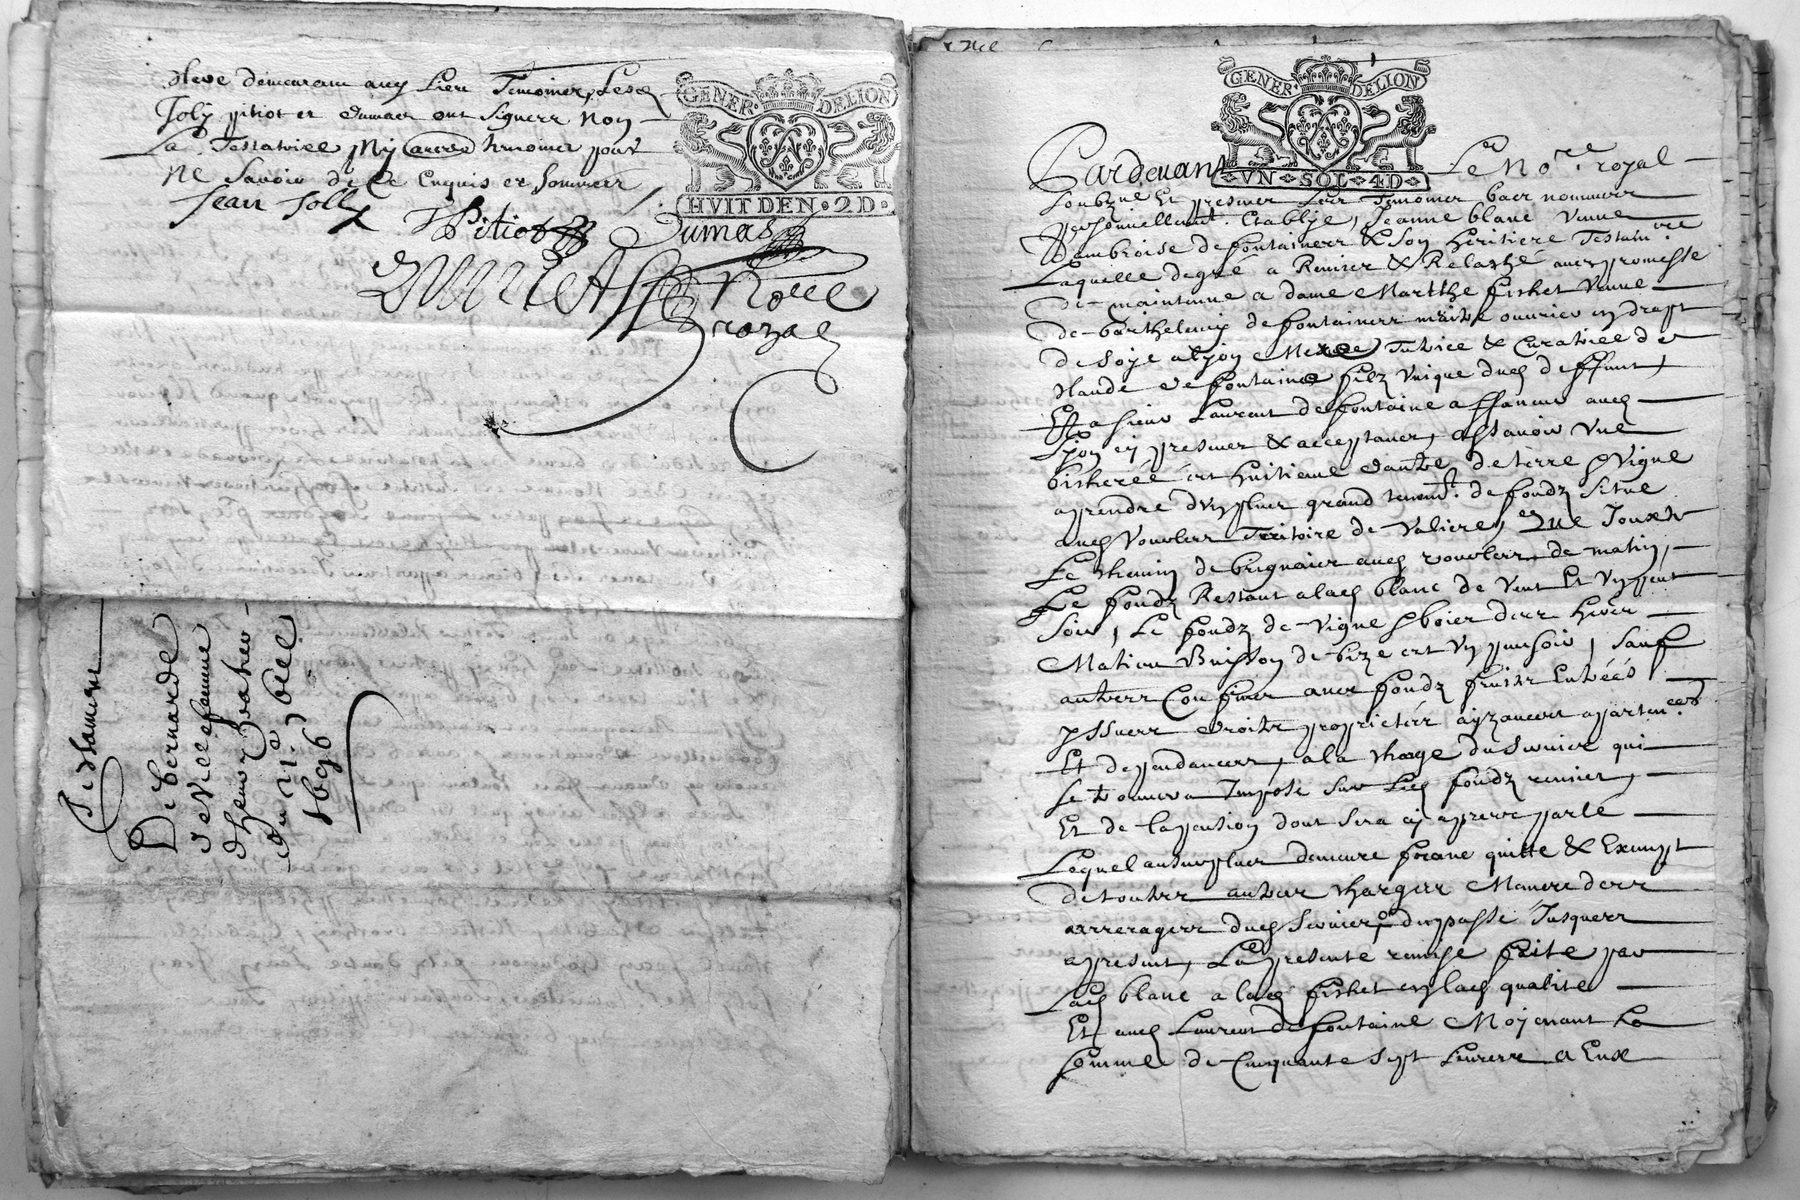 demeurans aud lieu Temoines, Lesd
Joly pitiot et dumas ont signes non
La Testatrice Ny temoines pour
Ne savoir de Ce Enquis et sommees
GENER. DELION
HVIT DEN. 2 D.
Jean Jolly
Pitiot
Dumas
Nore
royal
Testament
De bernarde
de Villefemme
d'henry
Du
1696
GENER. DELION
VN. SOL. 4 D.
Pardevant Le Nore. royal
soubzne Et presents Les Temoines bas nommees
personnellemt. Establye, Jeanne blanc veuve
d'ambroise de fontaines & son heritiere Testamre
Laquelle de gré a Remise & Relasché avec promesse
de maintenue a dame Marthe fichet veuve
de barthelemy de fontaines maitre ouvrier en drapt
de soye a lyon Mere Tutrice & Curatrice de
Claude de fontaine filz unique dud deffunt,
Et a sieur Laurent de fontaine affaneur aud
Lyon cy presents & acceptants, assavoir une
bicherée et huitieme d'autre de terre & vigne
a prendre d'un plus grand tenemt. de fondz situé
aud Vourles Territoire de Valiere, Jouxte
Le chemin de brignais aud vourles de matin,
Le fondz Restant a lad blanc de vent Et un peut
soir, Le fondz de vigne & bois des hoirs
Matieu Buisson de bize et un peu soir, sauf
autres Confines avec fondz fruitz Entrées
yssues droitz proprietés aizances appartences.
Et dependances, a la charge du servier qui
se trouvera Imposé sur Led fondz remier,
Et de la pention dont sera cy apres parlé
Lequel au surplus demeure franc quitte & Exempt
de toutes autres charges Mesme des
arrerages dud servier, du passé Jusques
a present, La presente remise faite par
Lad blanc a lad fichet en lad qualité
Et aud Laurent de fontaine Moyenant La
somme de Cinquante sept Livres a Eux